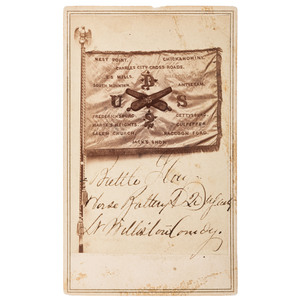 WEST POINT. CHICKAHOMINY.
CHARLES CITY CROSS ROADS.
MALVERN HILL
SOUTH MOUNTAIN. ANTIETAM.
D
U S
2
FREDERICKSBURG GETTYSBURG
MARYE'S HEIGHTS CULPEPER
SALEM CHURCH. RACCOON FORD.
Battle Flag
Horse Battery D 2d
Lt Williston Comdg.